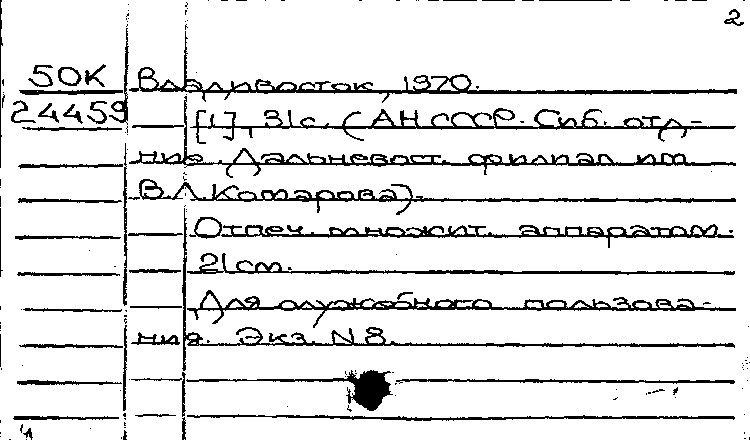 2
50К Владивосток, 1970.
24459 [1], 31с. (АН СССР. Сиб. отд-
ние. Дальневост. филиал им.
В.Л.Комарова).
Отпеч. множит. аппаратом.
21см.
Для служебного пользова-
ния. Экз. N 8.